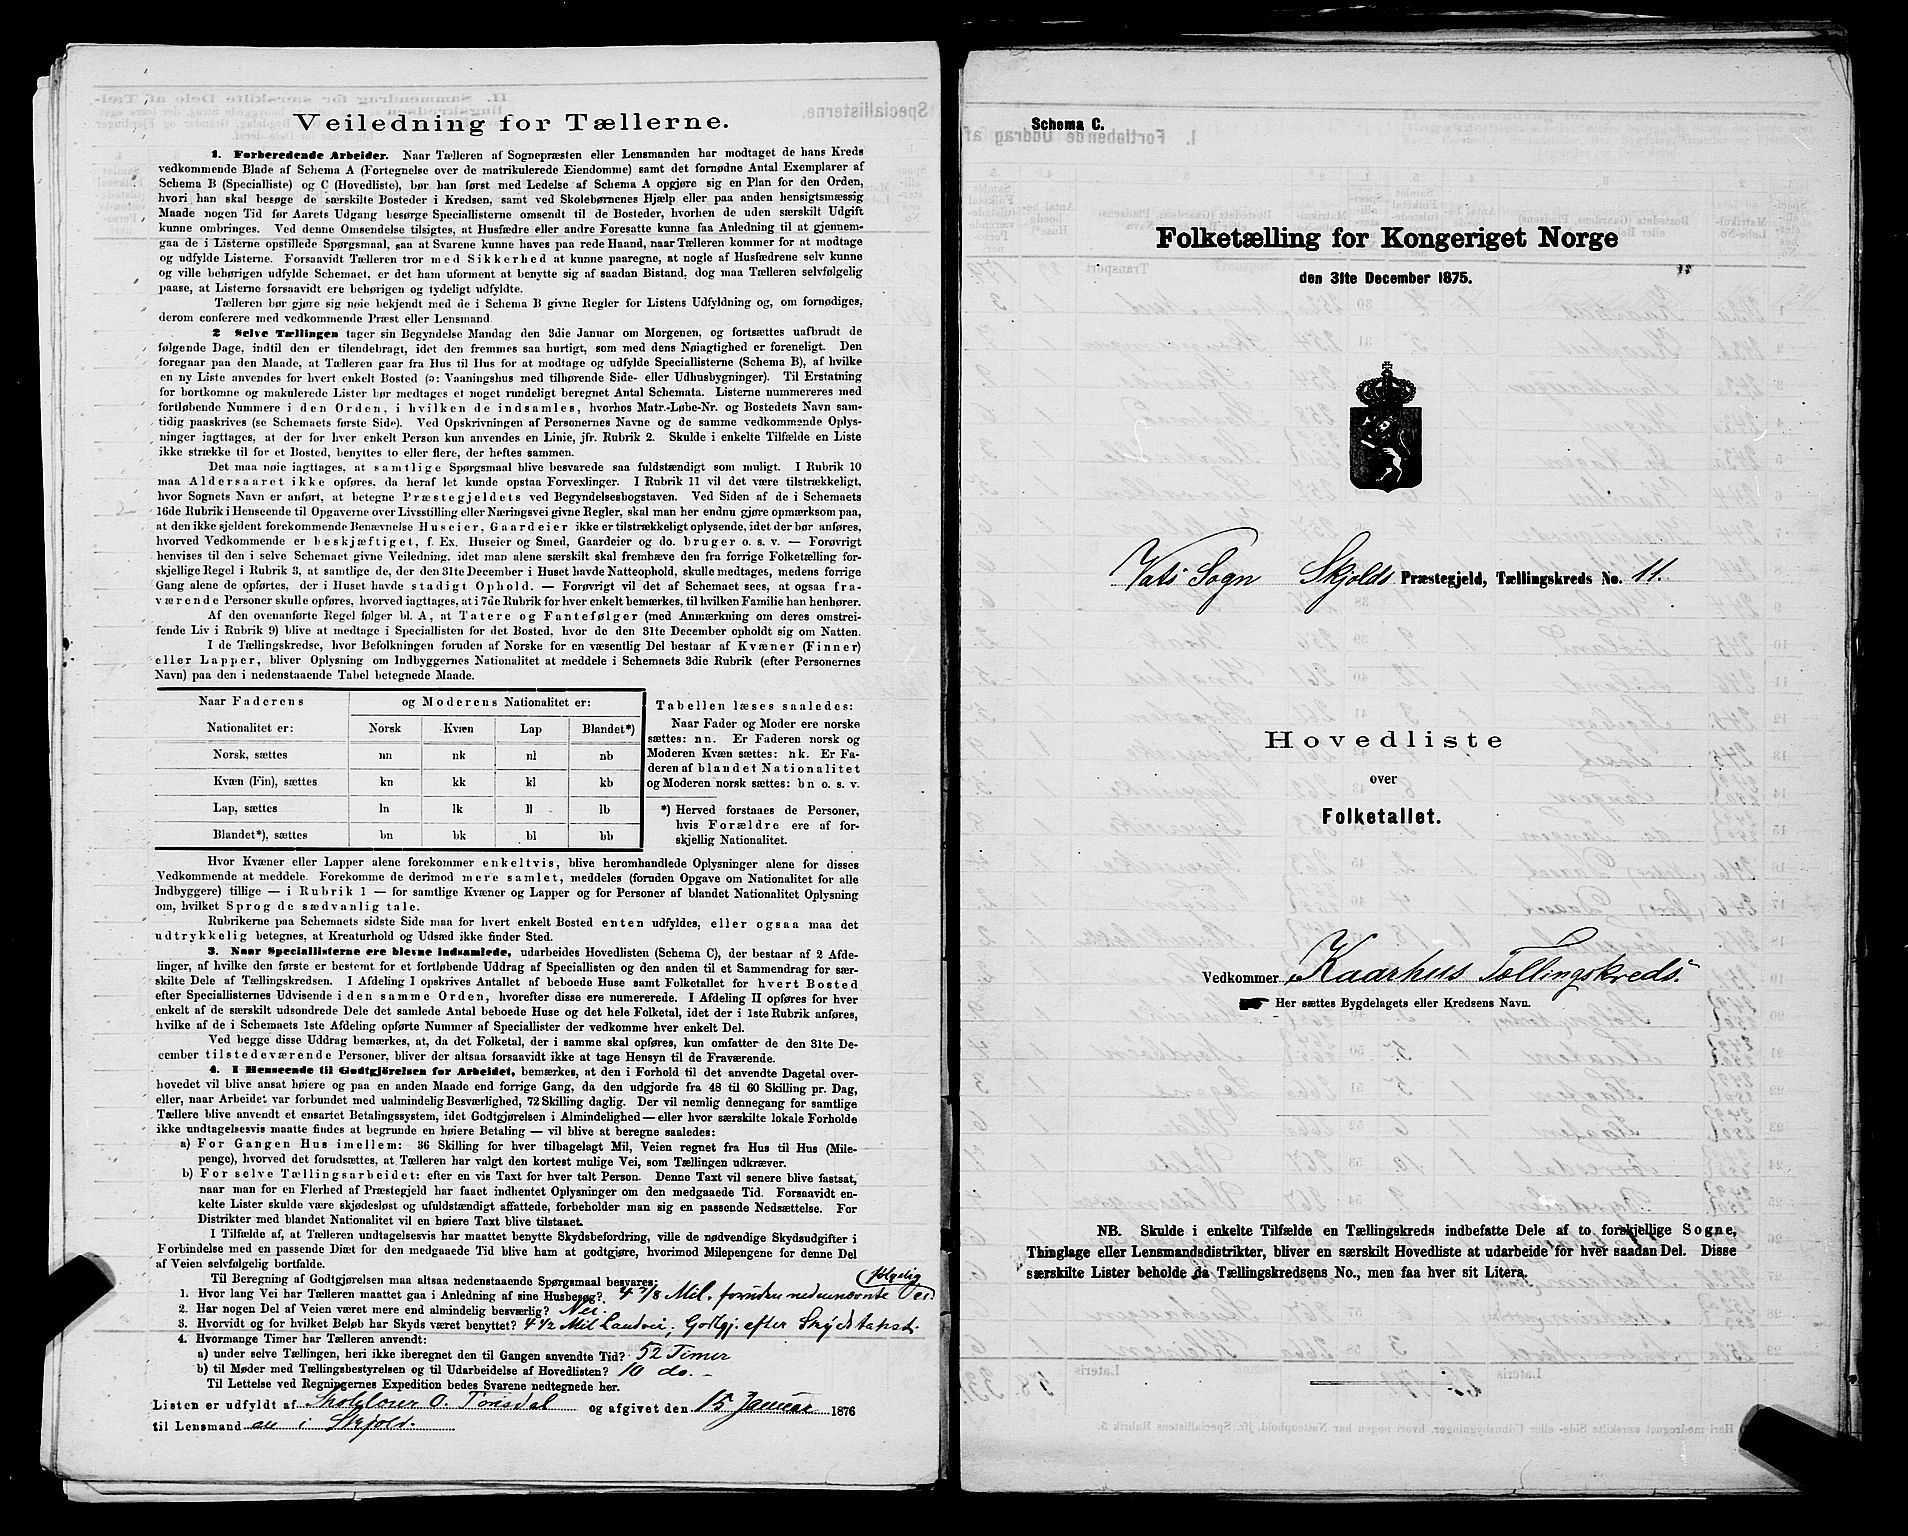 Veiledning for Tællerne.
1. Forberedende Arbeider. Naar Tælleren af Sognepræsten eller Lensmanden har modtaget de hans Kreds
vedkommende Blade af Schema A (Fortegnelse over de matrikulerede Eiendomme) samt det fornødne Antal Exemplarer af
Schema B (Specialliste) og C (Hovedliste), bør han først med Ledelse af Schema A opgjøre sig en Plan for den Orden,
hvori han skal besøge de særskilte Bosteder i Kredsen, samt ved Skolebørnenes Hjælp eller paa anden hensigtsmæssig
Maade nogen Tid før Aarets Udgang besørge Speciallisterne omsendt til de Bosteder, hvorhen de uden særskilt Udgift
kunne ombringes. Ved denne Omsendelse tilsigtes, at Husfædre eller andre Foresatte kunne faa Anledning til at gjennem-
gaa de i Listerne opstillede Spørgsmaal, saa at Svarene kunne haves paa rede Haand, naar Tælleren kommer for at modtage
og udfylde Listerne. Forsaavidt Tælleren tror med Sikkerhed at kunne paaregne, at nogle af Husfædrene selv kunne
og ville behørigen udfylde Schemaet, er det ham uforment at benytte sig af saadan Bistand, dog maa Tælleren selvfølgelig
paase, at Listerne forsaavidt ere behørigen og tydeligt udfyldte.
Tælleren bør gjøre sig nøie bekjendt med de i Schema B givne Regler for Listens Udfyldning og, om fornødiges,
derom conferere med vedkommende Præst eller Lensmand.
2 Selve Tællingen tager sin Begyndelse Mandag den 3die Januar om Morgenen, og fortsættes uafbrudt de
følgende Dage, indtil den er tilendebragt, idet den fremmes saa hurtigt, som med dens Nøiagtighed er foreneligt. Den
foregaar paa den Maade, at Tælleren gaar fra Hus til Hus for at modtage og udfylde Speciallisterne (Schema B), af hvilke
en ny Liste anvendes for hvert enkelt Bosted (ɔ: Vaaningshus med tilhørende Side- eller Udhusbygninger). Til Erstatning
for bortkomne og makulerede Lister bør medtages et noget rundeligt beregnet Antal Schemata. Listerne nummereres med
fortløbende Nummere i den Orden, i hvilken de indsamles, hvorhos Matr.-Løbe-Nr. og Bostedets Navn sam-
tidig paaskrives (se Schemaets første Side). Ved Opskrivningen af Personernes Navne og de samme vedkommende Oplys-
ninger iagttages, at der for hver enkelt Person kun anvendes en Linie, jfr. Rubrik 2. Skulde i enkelte Tilfælde en Liste
ikke strække til for et Bosted, benyttes to eller flere, der heftes sammen.
Det maa nøie iagttages, at samtlige Spørgsmaal blive besvarede saa fuldstændigt som muligt. I Rubrik 10
maa Aldersaaret ikke opføres, da heraf let kunde opstaa Forvexlinger. I Rubrik 11 vil det være tilstrækkeligt,
hvor Sognets Navn er anført, at betegne Præstegjeldets ved Begyndelsesbogstaven. Ved Siden af de i Schemaets
16de Rubrik i Henseende til Opgaverne over Livsstilling eller Næringsvei givne Regler, skal man her endnu gjøre opmærksom paa,
at den ikke sjeldent forekommende Benævnelse Huseier, Gaardeier ikke er tilstrækkeligt oplysende, idet der bør anføres,
hvorved Vedkommende er beskjæftiget, f. Ex. Huseier og Smed, Gaardeier og do. bruger o. s. v. — Forøvrigt
henvises til den i selve Schemaet givne Veiledning, idet man alene særskilt skal fremhæve den fra forrige Folketælling for-
skjellige Regel i Rubrik 3, at samtlige de, der den 31te December i Huset havde Natteophold, skulle medtages, medens forrige
Gang alene de opførtes, der i Huset havde stadigt Ophold. — Forøvrigt vil det af Schemaet sees, at ogsaa fra-
værende Personer skulle opføres, hvorved iagttages, at i 7de Rubrik for hver enkelt bemærkes, til hvilken Familie han henhører.
Af den ovenanførte Regel følger bl. A, at Tatere og Fantefølger (med Anmærkning om deres omstrei-
fende Liv i Rubrik 9) blive at medtage i Speciallisten for det Bosted, hvor de den 31te December opholdt sig om Natten.
I de Tællingskredse, hvor Befolkningen foruden af Norske for en væsentlig Del bestaar af Kvæner (Finner)
eller Lapper, bliver Oplysning om Indbyggernes Nationalitet at meddele i Schemaets 3die Rubrik (efter Personernes
Navn) paa den i nedenstaaende Tabel betegnede Maade.
Naar Faderens og Moderens Nationalitet er:
Nationalitet er: Norsk Kvæn Lap Blandet*)
Norsk, sættes nn nk nl nb
Kvæn (Fin), sættes kn kk kl kb
Lap, sættes ln lk ll lb
Blandet*), sættes bn bk bl bb
Tabellen læses saaledes:
Naar Fader og Moder ere norske
sættes: nn. Er Faderen norsk og
Moderen Kvæn sættes: nk. Er Fa-
deren af blandet Nationalitet
og Moderen norsk sættes: bn o. s. v.
*) Herved forstaaes de Personer,
hvis Forældre ere af for-
skjellig Nationalitet.
Hvor Kvæner eller Lapper alene forekommer enkeltvis, blive heromhandlede Oplysninger alene for disses
Vedkommende at meddele. Forekomme de derimod mere samlet, meddeles (foruden Opgave om Nationalitet for alle
Indbyggere) tillige — i Rubrik 1 — for samtlige Kvæner og Lapper og for Personer af blandet Nationalitet Oplysning
om, hvilket Sprog de sædvanlig tale.
Rubrikerne paa Schemaets sidste Side maa for hvert enkelt Bosted enten udfyldes, eller ogsaa maa det
udtrykkelig betegnes, at Kreaturhold og Udsæd ikke finder Sted.
3. Naar Speciallisterne ere blevne indsamlede, udarbeides Hovedlisten (Schema C), der bestaar af 2 Afde-
linger, af hvilke den første er bestemt for et fortløbende Uddrag af Speciallisten og den anden til et Sammendrag for sær-
skilte Dele af Tællingskredsen. I Afdeling I opgives Antallet af beboede Huse samt Folketallet for hvert Bosted
efter Speciallisternes Udvisende i den samme Orden, hvorefter disse ere numererede. I Afdeling II opføres for hver
enkelt af de særskilt udsondrede Dele det samlede Antal beboede Huse og det hele Folketal, idet der i 1ste Rubrik anføres,
hvilke af de i Schemaets 1ste Afdeling opførte Nummer af Speciallister der vedkomme hver enkelt Del.
Ved begge disse Uddrag bemærkes, at, da det Folketal, der i samme skal opføres, kun omfatter de den 31te De-
cember tilstedeværende Personer, bliver der altsaa forsaavidt ikke at tage Hensyn til de Fraværende.
4. I Henseende til Godtgjörelsen for Arbeidet, bemærkes, at den i Forhold til det anvendte Dagetal over-
hovedet vil blive ansat høiere og paa en anden Maade end forrige Gang, da den udgjorde fra 48 til 60 Skilling pr. Dag,
eller, naar Arbeidet var forbundet med ualmindelig Besværlighed, 72 Skilling daglig. Der vil nemlig dennegang for samtlige
Tællere blive anvendt et ensartet Betalingssystem, idet Godtgjørelsen i Almindelighed — eller hvor særskilte lokale Forholde
ikke undtagelsesvis maatte findes at begrunde en høiere Betaling — vil blive at beregne saaledes:
a) For Gangen Hus imellem: 36 Skilling for hver tilbagelagt Mil, Veien regnet fra Hus til Hus (Mile-
penge), hvorved det forudsættes, at Tælleren har valgt den kortest mulige Vei, som Tællingen udkræver.
b) For selve Tællingsarbeidet: efter en vis Taxt for hver talt Person. Denne Taxt vil senere blive fastsat,
naar man for en Flerhed af Præstegjeld har faaet indhentet Oplysninger om den medgaaede Tid. Forsaavidt en-
kelte Lister skulde være skjødesløst og ufuldstændigt affattede, forbeholder man sig en passende Nedsættelse. For
Distrikter med blandet Nationalitet vil en høiere Taxt blive tilstaaet.
I Tilfælde af, at Tælleren undtagelsesvis har maattet benytte Skydsbefordring, ville de nødvendige Skydsudgifter i
Forbindelse med en passende Diæt for den medgaaede Tid blive ham at godtgjøre, hvorimod Milepengene for denne Del
af Veien selvfølgelig bortfalde.
Til Beregning af Godtgjørelsen maa altsaa nedenstaaende Spørgsmaal besvares:
1. Hvor lang Vei har Tælleren maattet gaa i Anledning af sine Husbesøg? 4 7/8 Mil, foruden nedennævnte
2. Har nogen Del af Veien været mere end almindelig besværlig? Nei.
3. Hvorvidt og for hvilket Beløb har Skyds været benyttet? 4 1/2 Mil Landvei, Godtgj. efter Skydstakst.
4. Hvormange Timer har Tælleren anvendt:
a) under selve Tællingen, heri ikke iberegnet den til Gangen anvendte Tid? 52 Timer
b) til Møder med Tællingsbestyrelsen og til Udarbeidelse af Hovedlisten? 10 do. -
Til Lettelse ved Regningernes Expedition bedes Svarene nedtegnede her.
Listen er udfyldt af Skolelærer O. Torisdal og afgivet den 15 Januar 1876
til Lensmanden i Skjold.
Schema C.
Folketælling for Kongeriget Norge
den 31te December 1875.
Vats Sogn Skjolds Præstegjeld, Tællingskreds No. 11.
Hovedliste
over
Folketallet.
Vedkommer Kaarhus Tællingskreds.
Her sættes Bygdelagets eller Kredsens Navn.
NB. Skulde i enkelte Tilfælde en Tællingskreds indbefatte Dele af to forskjellige Sogne,
Thinglage eller Lensmandsdistrikter, bliver en særskilt Hovedliste at udarbeide for hver saadan Del. Disse
særskilte Lister beholde da Tællingskredsens No., men faa hver sit Litera.